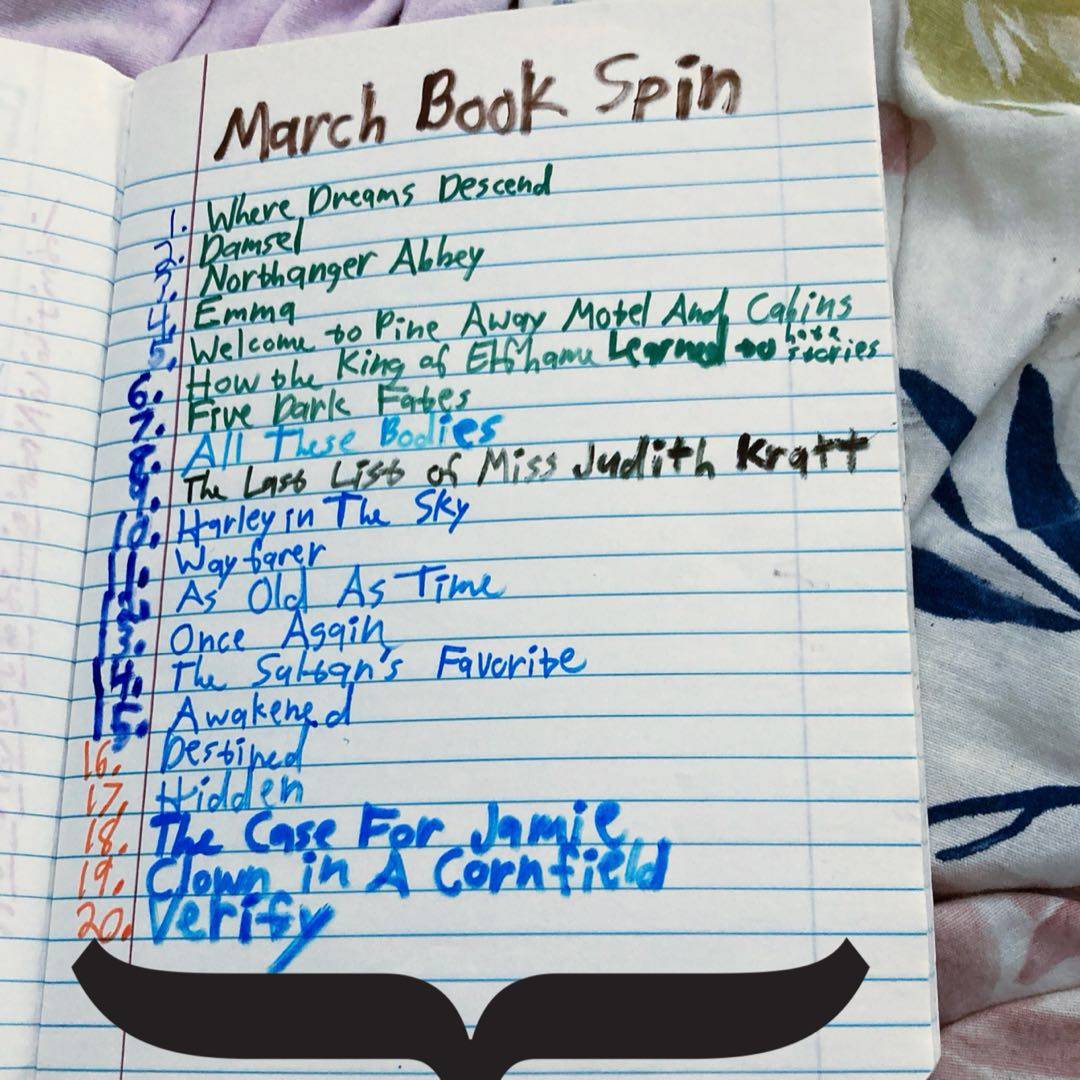 March Book Spin
1. Where Dreams Descend
2. Damsel
3. Northanger Abbey
4. Emma
5. Welcome to Pine Away Motel And Cabins
6. How the King of Elfhame Learned to hate stories
7. Five Dark Fates
8. All These Bodies
9. The Last List of Miss Judith Kratt
10. Harley in The Sky
11. Wayfarer
12. As Old As Time
13. Once Again
14. The Sultan's Favorite
15. Awakened
16. Destined
17. Hidden
18. The Case For Jamie
19. Clown in A Cornfield
20. Verify